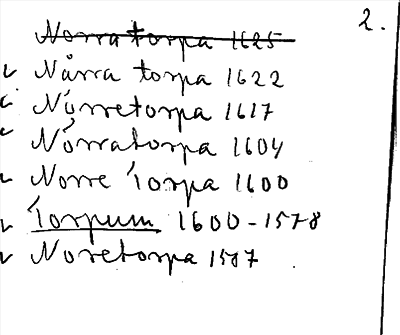 2.
Norra torpa 1625
Nårra torpa 1622
Nórretorpa 1617
Nórratorpa 1604
Norre Torpa 1600
Torpum 1600-1578
Noretorpa 1587